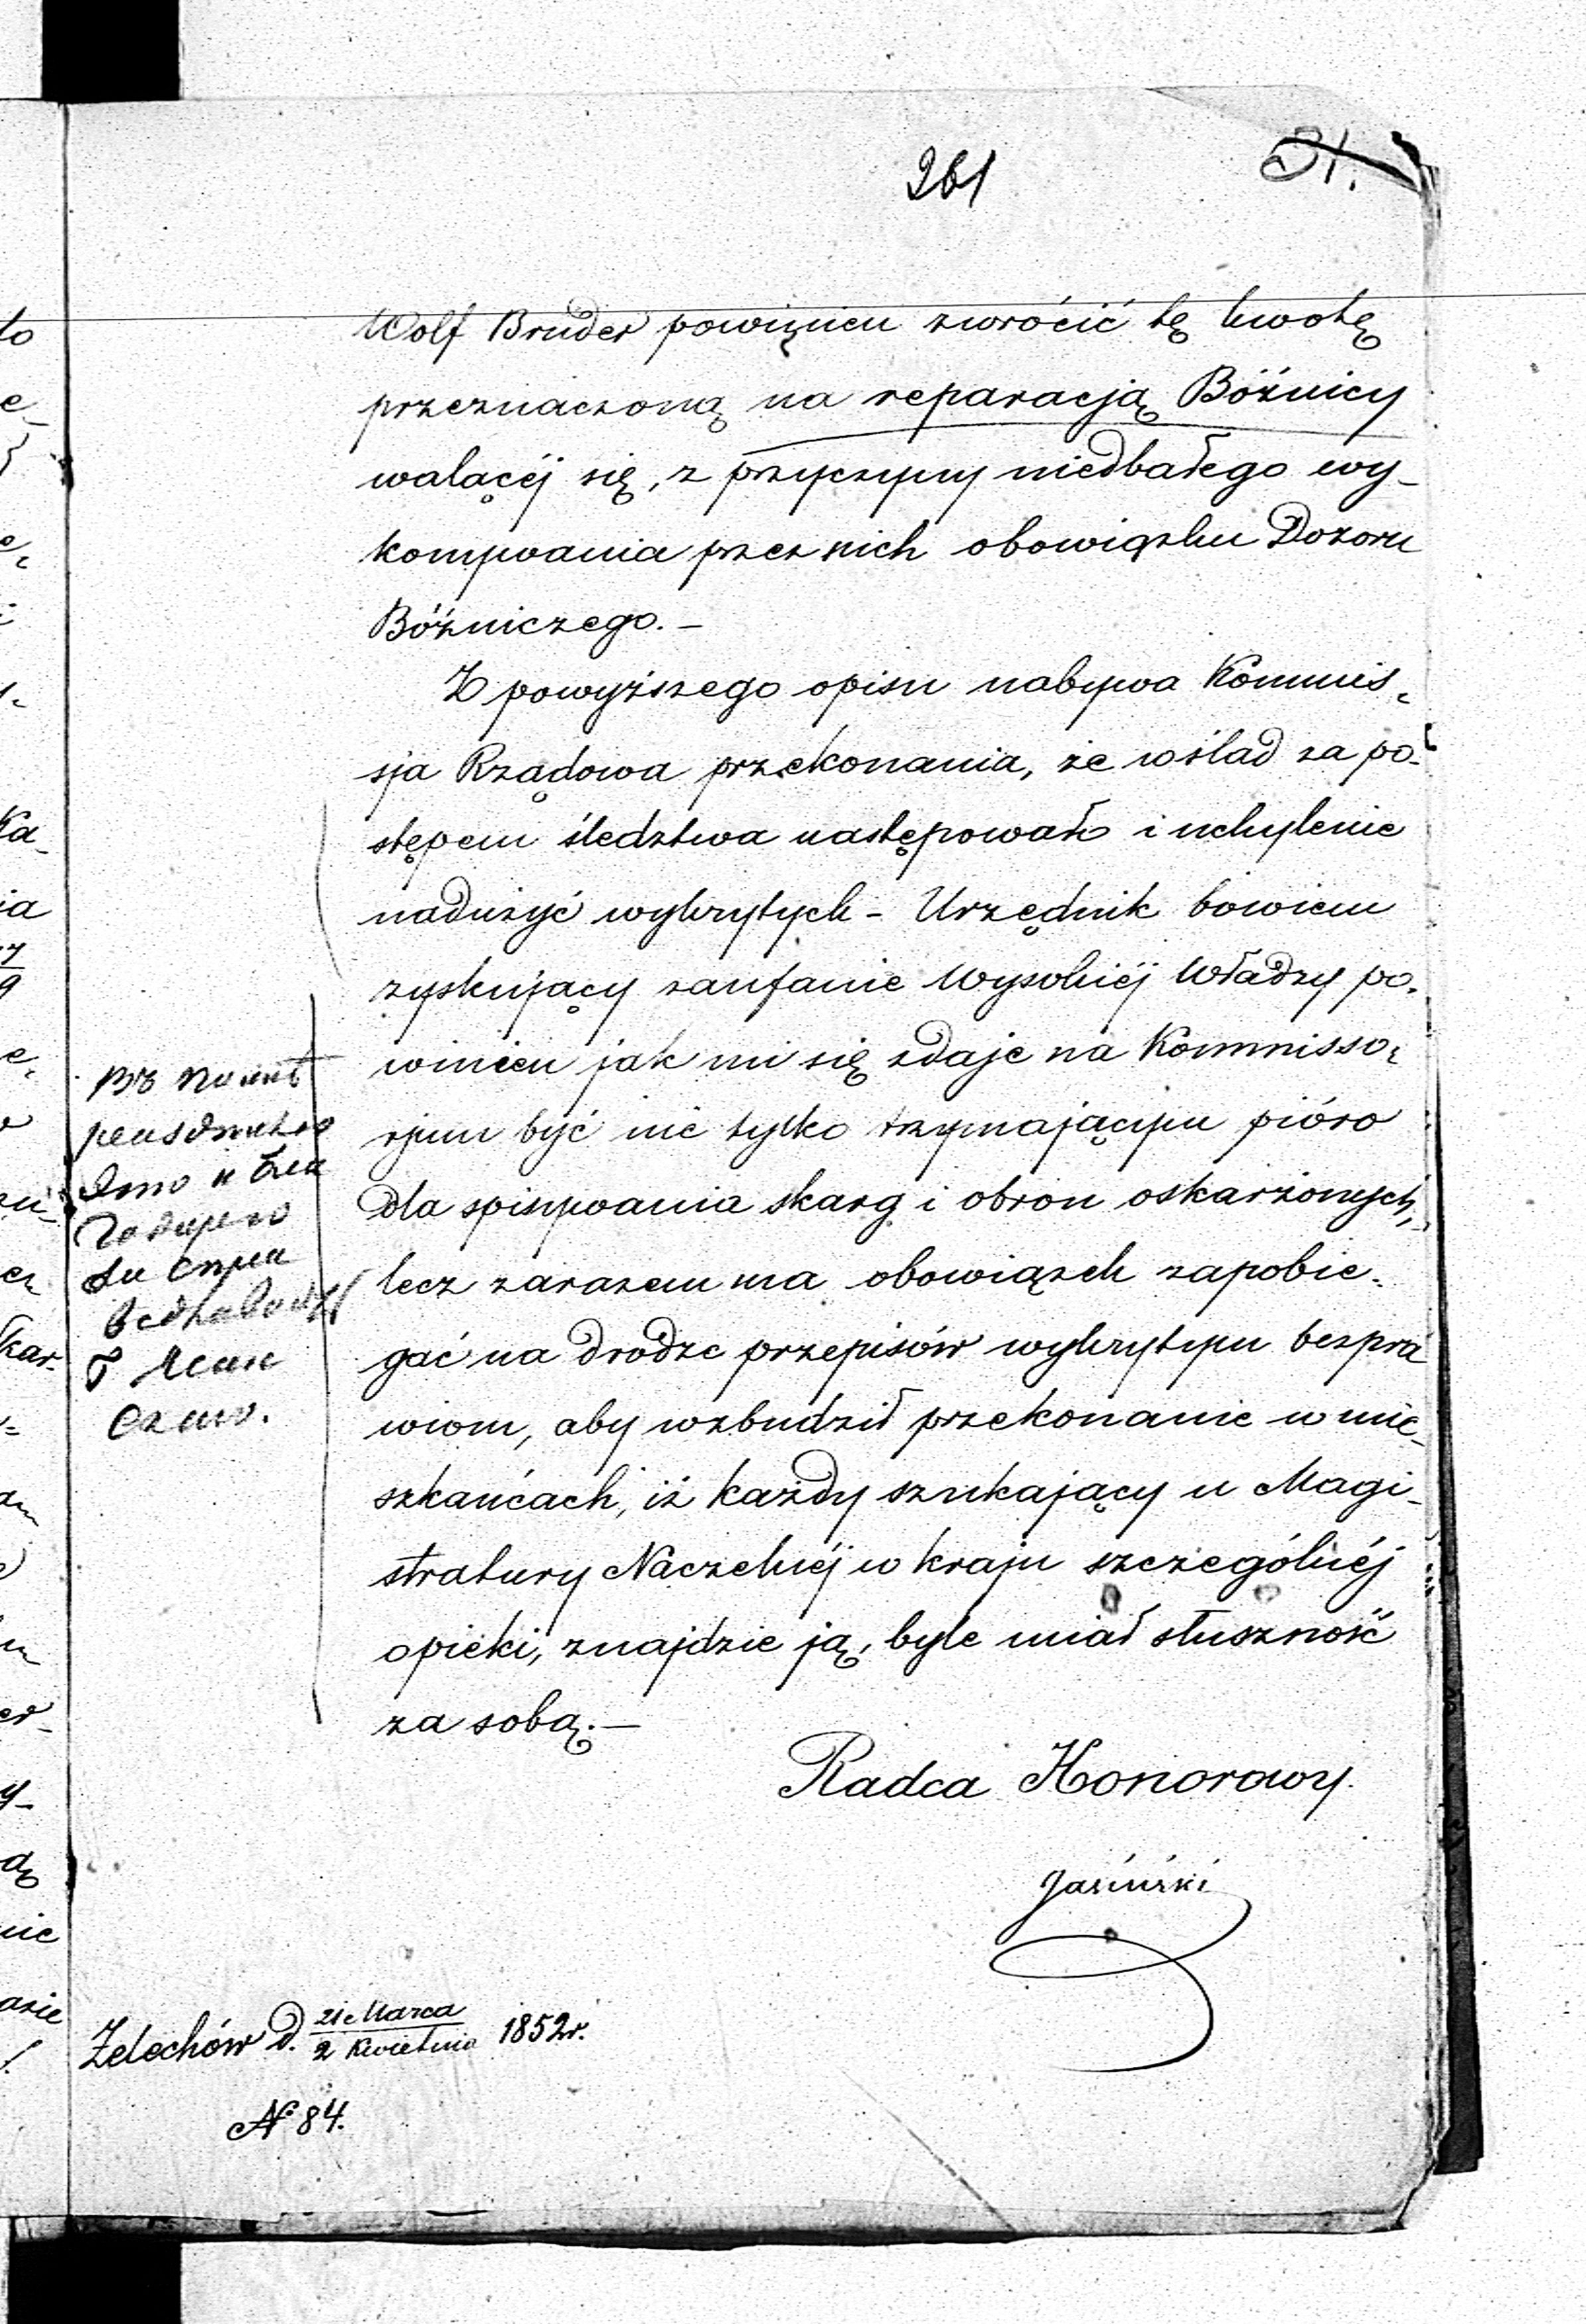 261
31.
Wolf Bruder powinien zwrócić tę kwotę
przeznaczoną na reparacją Bóźnicy
walącéj się, z przyczyny niedbałego wy-
konywania przez nich obowiązku Dozoru
Bóżniczego. -
Z powyższego opisu nabywa Kommis-
sja Rządowa przekonania, że wślad za po-
stępem śledztwa następowało i uchylenie
nadużyć wykrytych - Urzędnik bowiem
zyskujący zaufanie Wysokiéj Władzy po-
winien jak mi się zdaje na Kommisso-
rjum być nie tylko trzymającym pióro
dla spisywania skarg i obron oskarżonych,
lecz zarazem ma obowiązek zapobie-
gać na drodze przepisów wykrytym bezpra
wiom, aby wzbudził przekonanie w mie-
szkańcach, iż każdy szukający u Magi-
stratury Naczelnéj w kraju szczególnéj
opieki, znajdzie ją, byle miał słuszność
za sobą. -
Radca Honorowy.
Jasiński
Żelechów d. 21 Marca / 2 Kwietnia 1852 r.
№ 84.